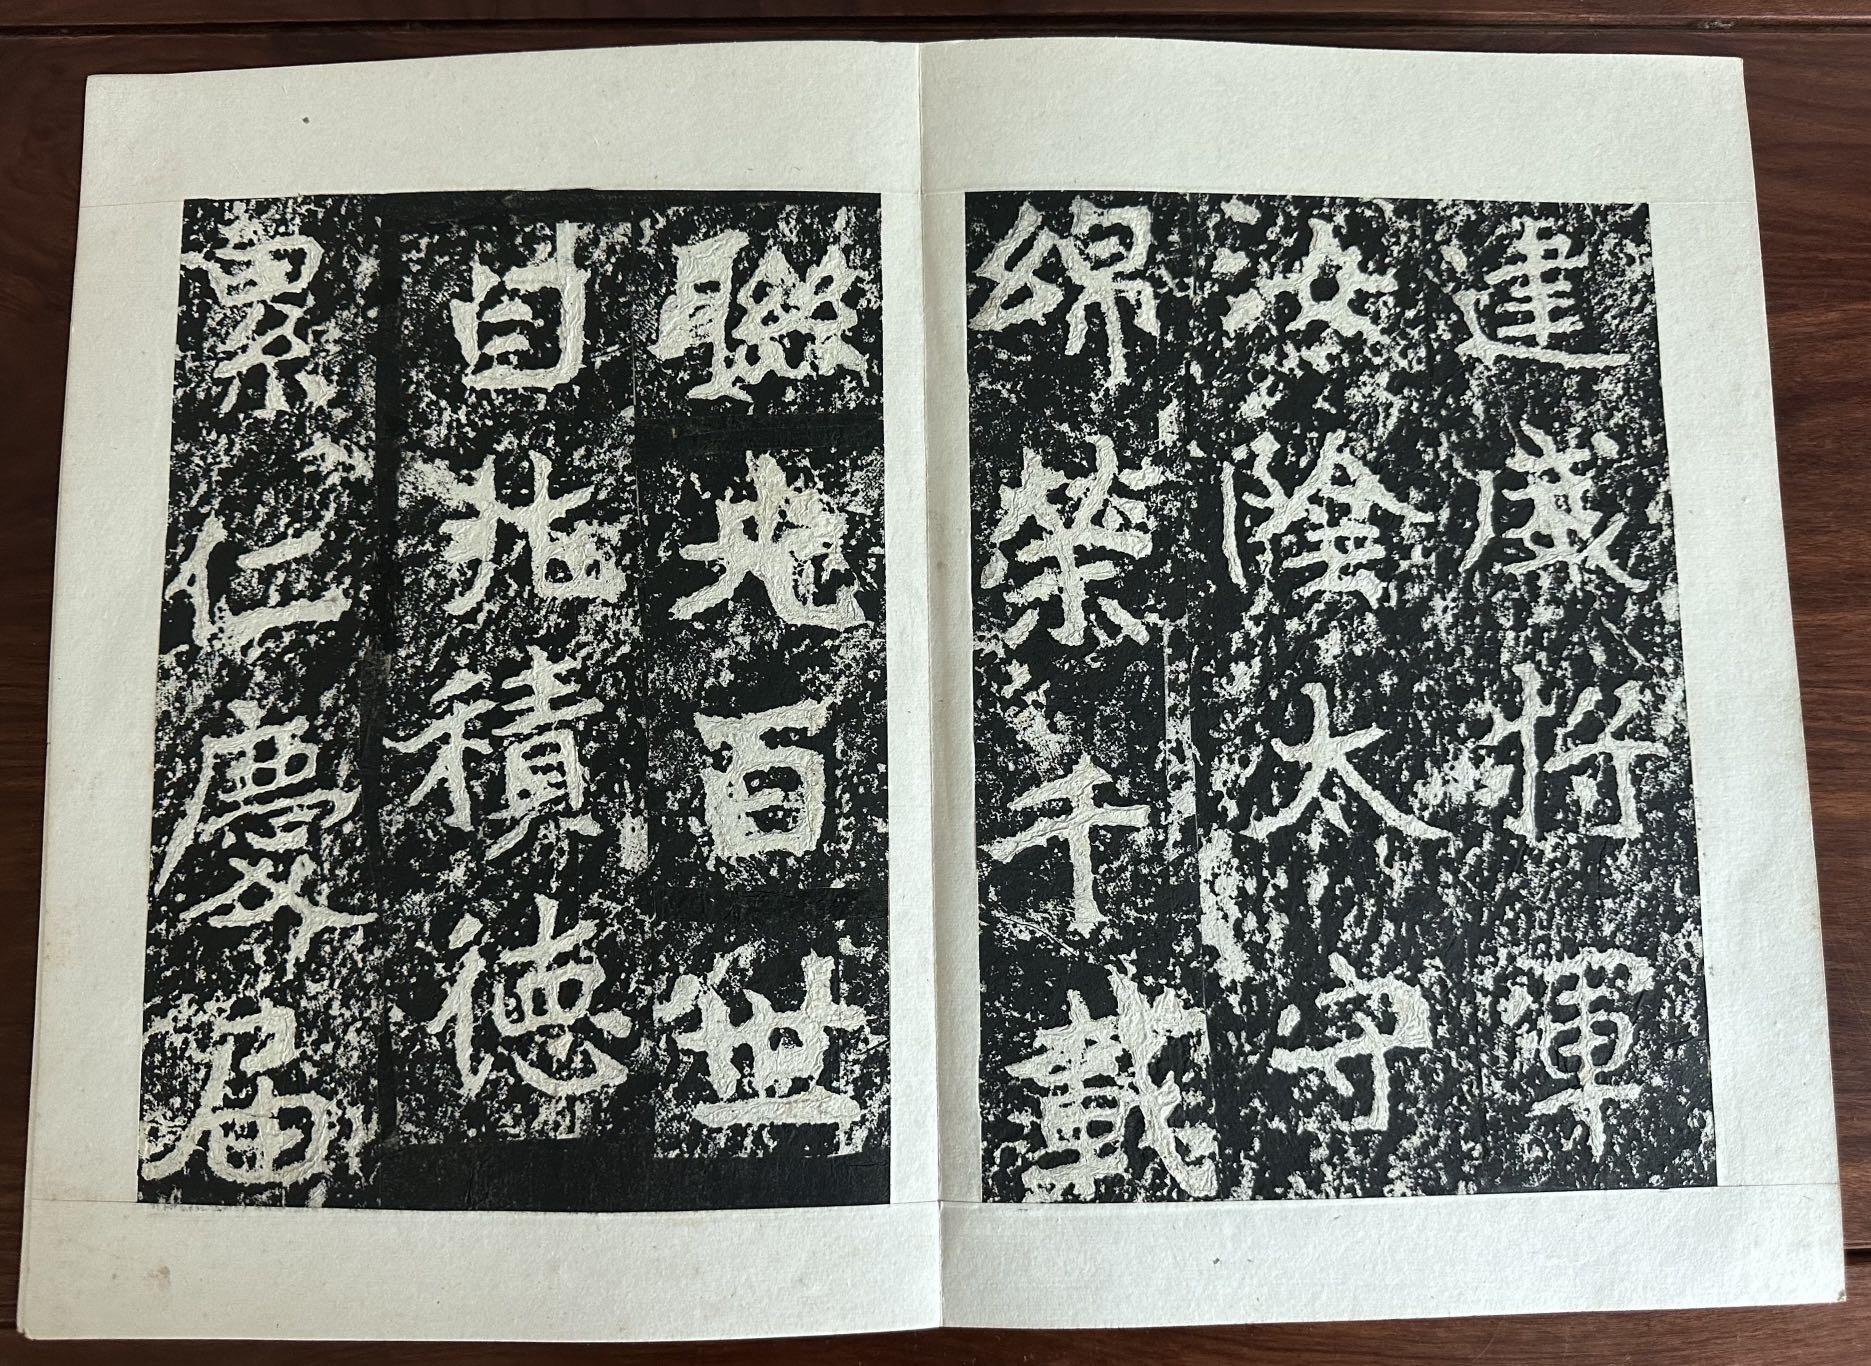 建威將軍
汝陰太守
綿榮千載
聯光百世
自非積德
累仁慶屆